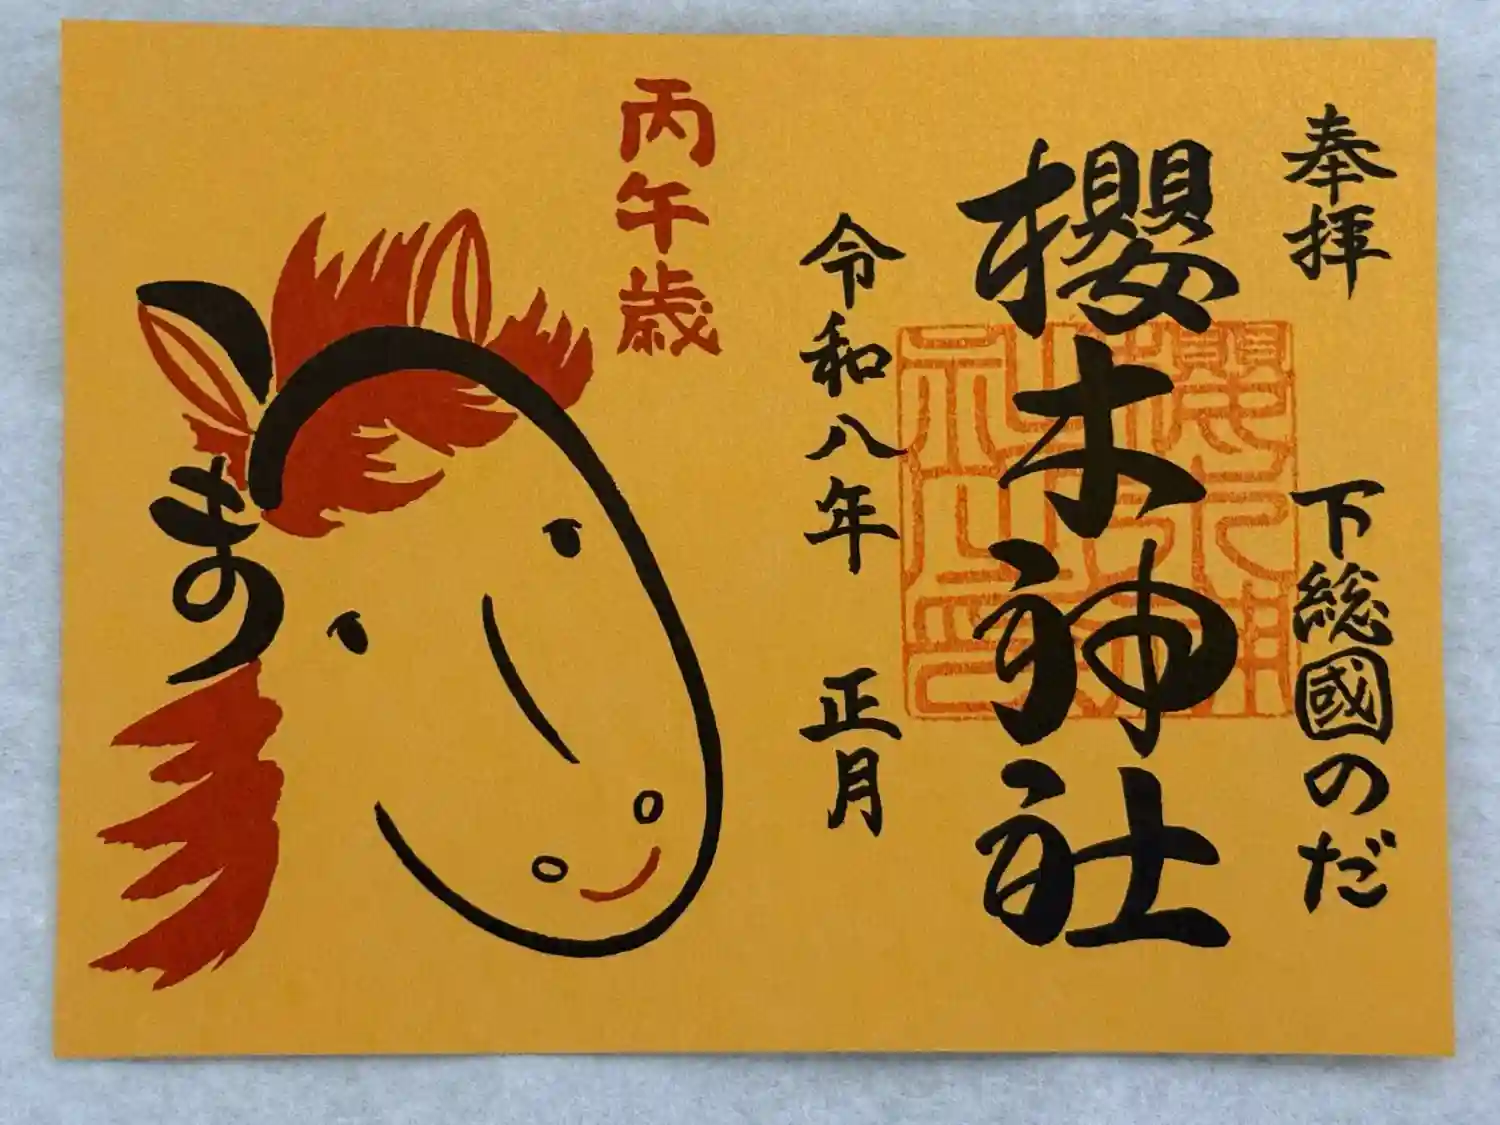 奉拝 下総國のだ
櫻木神社
櫻木神
社之印
令和八年 正月
丙午歳